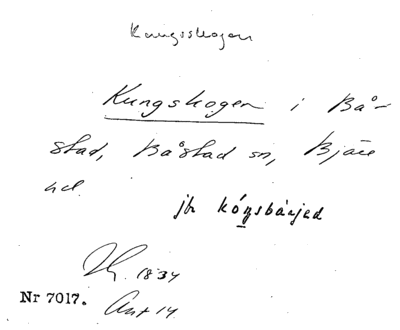 Kungsskogen
Kungskogen i Bå-
stad, Båstad sn, Bjäre
hd.
jfr kóŋsbárjed
1834
Nr 7017.
Ant 14